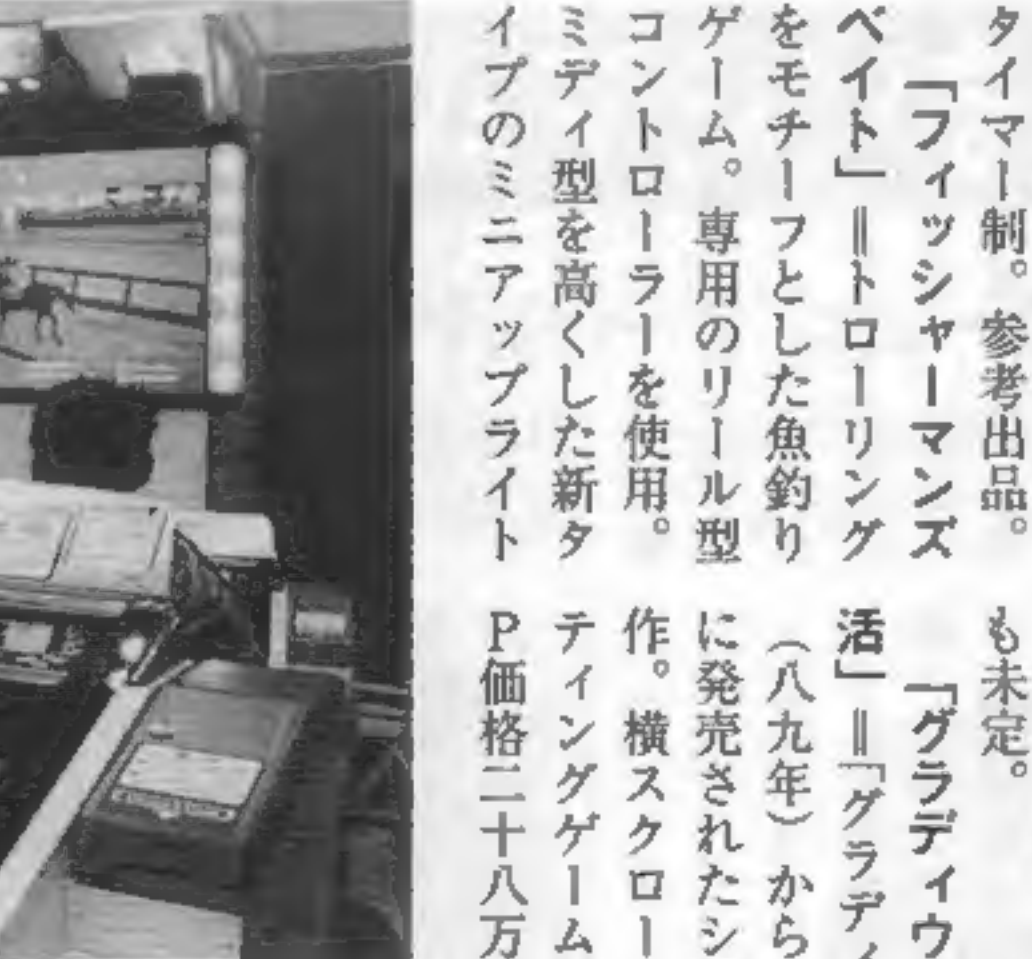 タイマー制。参考出品。
「フィッシャーマンズ
ベイト」＝トローリング
をモチーフとした魚釣り
ゲーム。専用のリール型
コントローラーを使用。
ミディ型を高くした新タ
イプのミニアップライト
も未定。
「グラディウ
活」＝「グラディ
（八九年）から
に発売されたシ
作。横スクロー
ティングゲーム
Ｐ価格二十八万